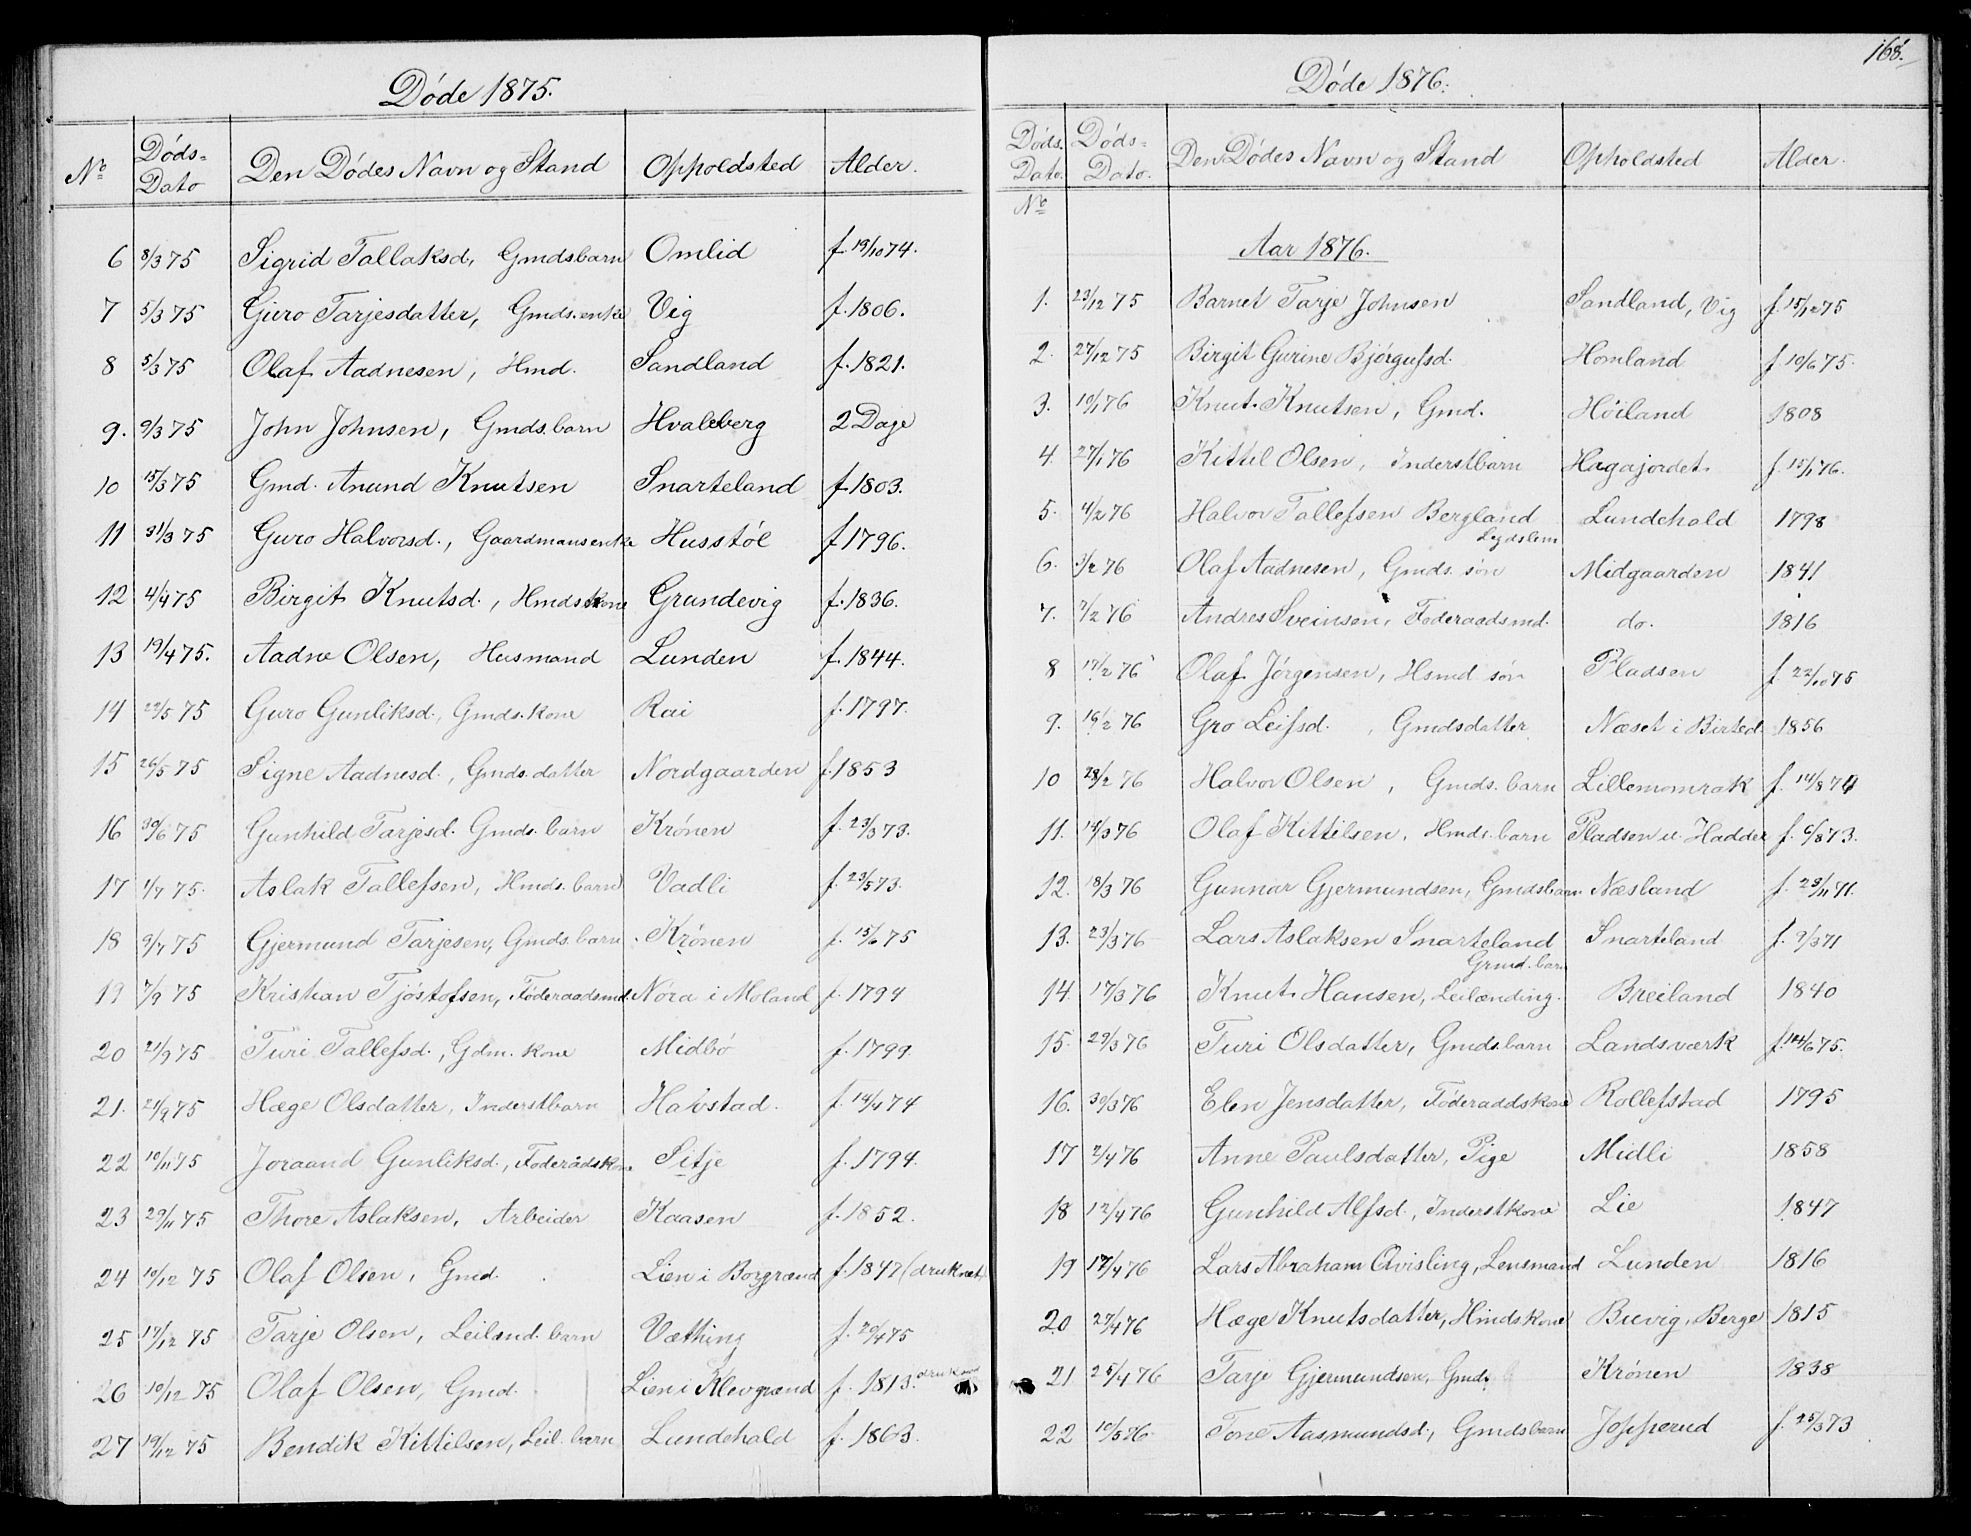 168.
Døde 1875.
Nº Døds-Dato Den Dødes Navn og Stand Oppoldsted Alder.
6 8/3 75 Sigrid Tallaksd, Gmdsbarn Omlid f. 19/10 74.
7 5/3 75 Guro Tarjesdatter, Gmds.enke Vig f. 1806.
8 5/3 75 Olaf Aadnesen, Hmd. Sandland f. 1821.
9. 9/3 75 John Johnsen, Gmds.barn Hvaleberg 2 Dage
10 15/3 75 Gmd. Anund Knutsen Snarteland f. 1803.
11 31/3 75 Guro Halvorsd., Gaardmansenke Husstøl f. 1796.
12 4/4 75 Birgit Knutsd., Hmds kone Grundevig f. 1836.
13 19/4 75. Aadne Olsen, Husmand Lunden f. 1844.
14 22/5 75 Guro Gunliksd., Gmds. kone Rui f. 1797.
15 26/5 75 Signe Aadnesd., Gmds. datter Nordgaarden f. 1853
16 30/6 75 Gunhild Tarjesd. Gmds. barn Krónen f. 23/3 73.
17 1/7 75. Aslak Tallefsen, Hmds. barn Vadli f. 23/5 73.
18 9/7 75 Gjermund Tarjesen, Gmds. barn Krónen f. 15/6 75
19 7/9 75 Kristian Tjóstofsen, Føderaadsmd. Nora i Moland f. 1794
20 21/9 75 Turi Tallefsd., Gdm. kone Midbø f. 1799
21. 21/9 75 Hæge Olsdatter, Inderstbarn Havstad. f. 14/4 74
22 10/11 75 Joraand Gunliksd., Føderådskone Sitje f. 1794.
23 29/11 75 Thore Aslaksen, Arbeider Kaasen f. 1852.
24 10/12 75 Olaf Olsen, Gmd. Lien i Borgrænd f. 1847 (druknet)
25 17/12 75 Tarje Olsen, Leilænd. barn Væthing f. 20/4 75
26 10/12 75 Olaf Olsen, Gmd. Lien i Klevgrænd f. 1813.
27 19/12 75 Bendik Kittilsen, Leil. barn Lundehald f. 1863.
Døde 1876.
Døds. Dato. Døds-Dato. Den Dødes Navn og Stand Opholdsted Alder.
Nº
Aar 1876.
1. 23/12 75 Barnet Tarje Johnsen Sandland, Vig f. 15/12 75
2. 27/12 75 Birgit Gurine Bjórgufsd. Homland f. 10/6 75.
3. 10/1 76 Knut Knutsen, Gmd. Høiland 1808
4. 27/1 76 Kittil Olsen, Inderstbarn Hagajordet f. 15/1 76.
5. 4/2 76 Halvor Tallefsen Bergland Lundehald 1798
Legdslem
6. 3/2 76 Olaf Aadnesen, Gmds. søn Midgaarden 1841
7. 7/2 76 Andres Sveinsen, Føderaadsmd. do. 1816
8 17/2 76 Olaf Jørgensen, Hsmd søn Pladsen f. 22/10 75
9. 19/2 76 Gro Leifsd., Gmdsdatter Næset i Birted 1856
10 28/2 76 Halvor Olsen, Gmds. barn Lillemomrak f. 14/8 74
11. 14/3 76 Olaf Kittilsen, Hmds. barn Pladsen u. Hadder f. 6/8 73.
12. 18/3 76 Gunnar Gjermundsen, Gmdsbarn Næsland f. 23/11 71.
13. 23/3 76 Lars Aslaksen Snarteland Snarteland f. 9/3 71
Grmd. barn
14. 17/3 76 Knut Hansen, Leilænding. Breiland 1840
15. 29/3 76 Turi Olsdatter, Gmds.barn Landsværk f. 14/6 75.
16. 30/3 76 Elen Jensdatter, Føderaadskone Rollefstad 1795
17 2/4 76 Anne Paulsdatter, Pige Midli 1858
18 12/4 76 Gunhild Alfsd., Inderstkone Lie 1847
19 17/4 76 Lars Abraham Qvisling, Lensmand Lunden 1816
20 27/4 76 Hæge Knutsdatter, Hmdskone Buvig, Berge 1815
21 25/4 76 Tarje Gjermundsen, Gmd. Krónen 1838
22 10/5 76 Tone Aasmundsd., Gmdsbarn Jopperud f. 25/3 73